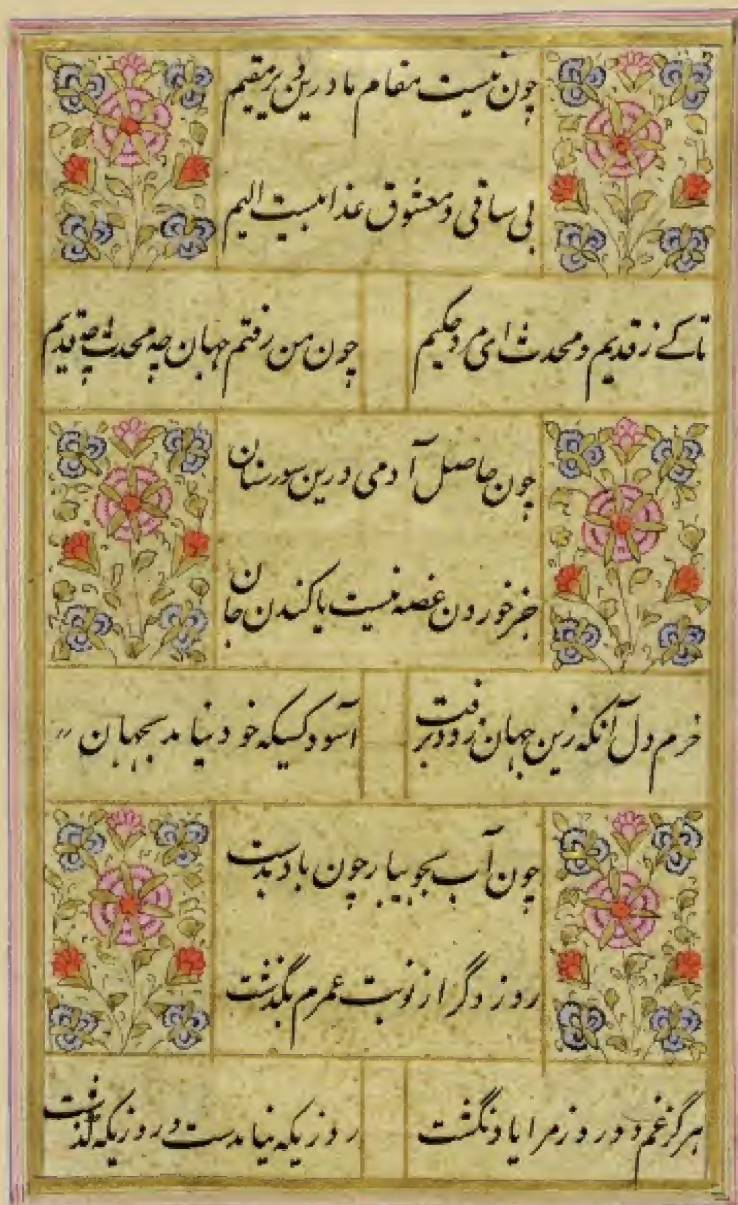 چون نیست مقام ما درین دیر مقیم
بی ساقی و معشوق عذابیست الیم
تا کے ز قدیم و محدث ای مرد حکیم
چون من رفتم جهان چه محدث چه قدیم
چون حاصل آدمی درین سورستان
جز خوردن غصه نیست یا کندن جان
خرم دل آنکه زین جهان زود برفت
آسود کسیکه خود نیامد بجهان
چون آب بجویبار چون باد بدشت
روز دگر از نوبت عمرم بگذشت
هرگز غم دو روز مرا یاد نگشت
روزیکه نیامدست و روزیکه گذشت